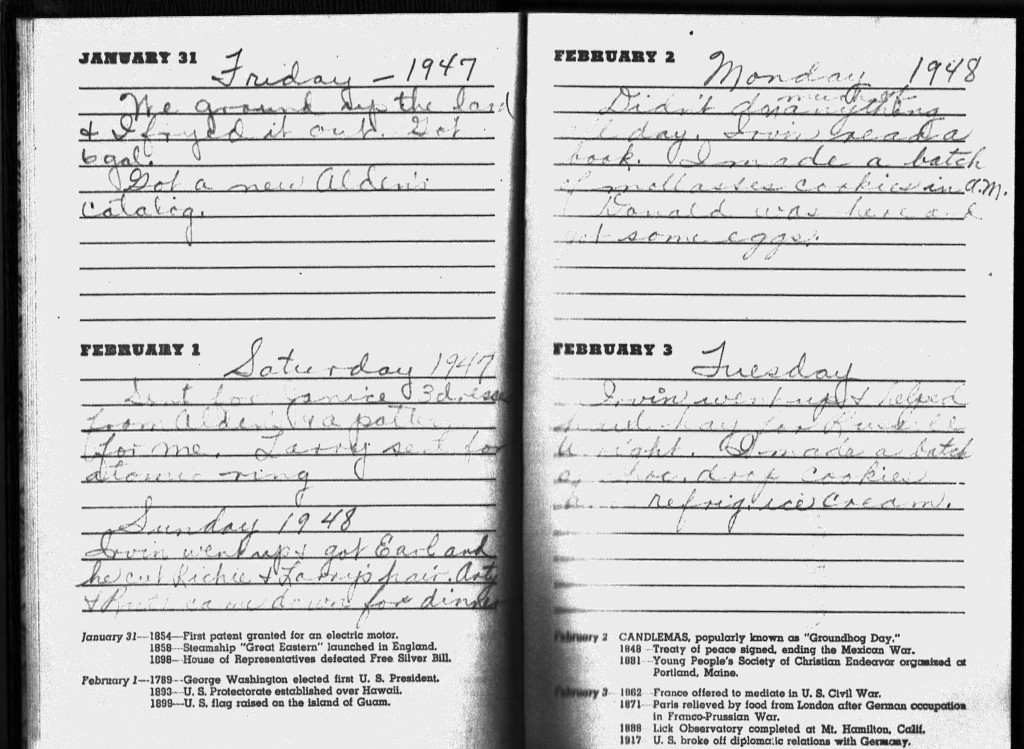 JANUARY 31 Friday - 1947
We ground up the lard
& I fryed it out. Got
6 gal.
Got a new Alden's
catalog.
FEBRUARY 1 Saturday 1947
Sent for Janice 3 dress
from Alden's & a patter
for me. Larry sent for
atomic ring
Sunday 1948
Irvin went up & got Earl and
he cut Richie & Larry's hair. Arty
& Ruth came down for dinner
January 31—1854—First patent granted for an electric motor.
1858—Steamship "Great Eastern" launched in England.
1898—House of Representatives defeated Free Silver Bill.
February 1—1789—George Washington elected first U. S. President.
1893—U. S. Protectorate established over Hawaii.
1899—U. S. flag raised on the island of Guam.
FEBRUARY 2 Monday 1948
much of
Didn't do anything
day. Irvin read a
book. I made a batch
of mollasses cookies in A.M.
Donald was here and
got some eggs.
FEBRUARY 3 Tuesday
Irvin went up & helped
haul hay for
night. I made a batch
choc. drop cookies
refrig. ice cream.
February 2 CANDLEMAS, popularly known as "Groundhog Day."
1848—Treaty of peace signed, ending the Mexican War.
1881—Young People's Society of Christian Endeavor organized at
Portland, Maine.
February 3—1862—France offered to mediate in U. S. Civil War.
1871—Paris relieved by food from London after German occupation
in Franco-Prussian War.
1888 Lick Observatory completed at Mt. Hamilton, Calif.
1917 U. S. broke off diplomatic relations with Germany.